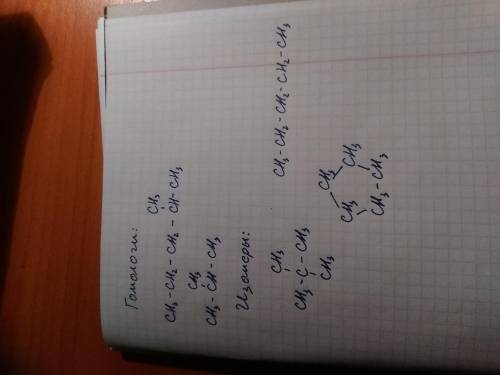 Гомологи:
CH₃
CH₃-CH₂-CH₂-CH-CH₃
CH₃
CH₃-CH-CH₃
Изомеры:
CH₃
CH₃-C-CH₃
CH₃
CH₃-CH₂-CH₂-CH₂-CH₃
CH₂
CH₃
CH₃-CH₃